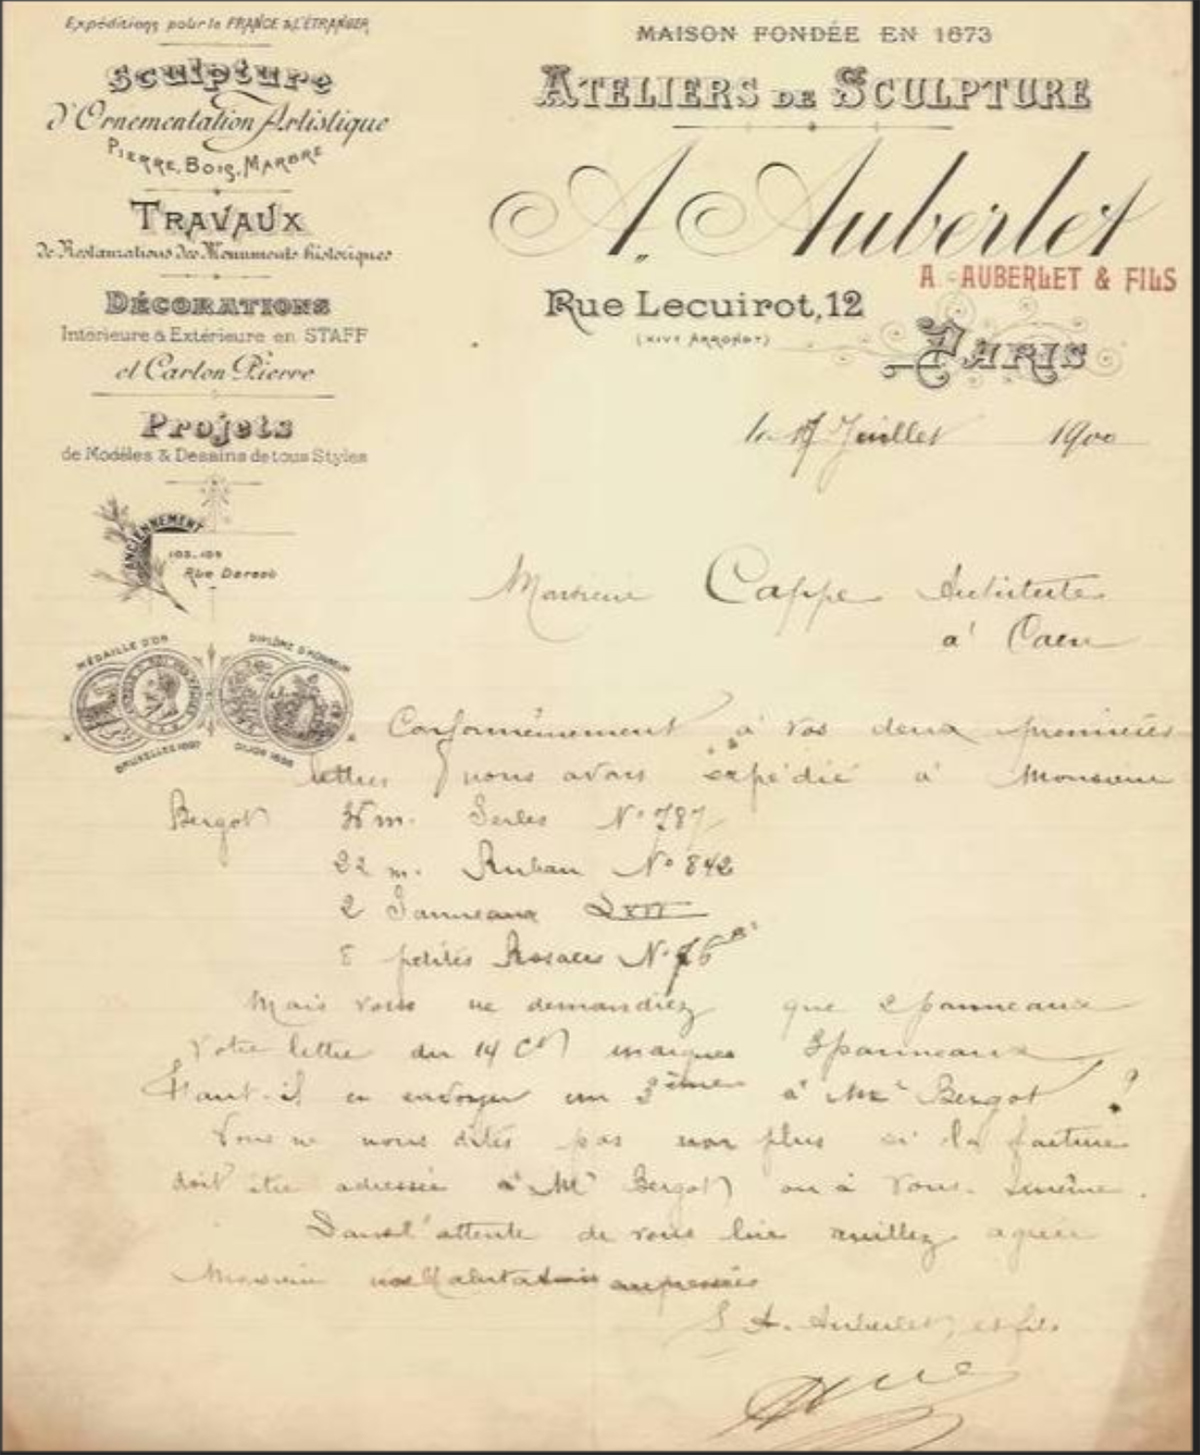 Expéditions pour la FRANCE & L'ÉTRANGER
Sculpture
d'Ornementation Artistique
PIERRE, BOIS, MARBRE
TRAVAUX
de Restaurations des Monuments historiques
DÉCORATIONS
Intérieure & Extérieure en STAFF
et Carton Pierre
Projets
de Modèles & Dessins de tous Styles
ANCIENNEMENT
Rue Dareau
MÉDAILLE D'OR
DIPLÔME D'HONNEUR
BRUXELLES
DIJON
MAISON FONDÉE EN 1873
ATELIERS DE SCULPTURE
A. Auberlet
A. AUBERLET & FILS
Rue Lecuirot, 12
(XIVe ARRONDT)
PARIS
le 17 Juillet 1900
Monsieur Cappe Architecte
à Caen
Conformémement à vos deux premières
lettres nous avons expédié à Monsieur
Bergot m. Perles No 787
22 m. Ruban No 842
2 Panneaux LXVI
8 petites Rosaces No 76
Mais vous ne demandiez que 2 panneaux
Votre lettre du 14 Ct marques 3 panneaux
Faut-il en envoyer un 3ème à Mr Bergot ?
Vous ne nous dites pas non plus si la facture
doit être adressée à Mr Bergot ou à Vous-même.
Dans l'attente de vous lire veuillez agréer
Monsieur nos Salutations empressées
A. Auberlet et fils